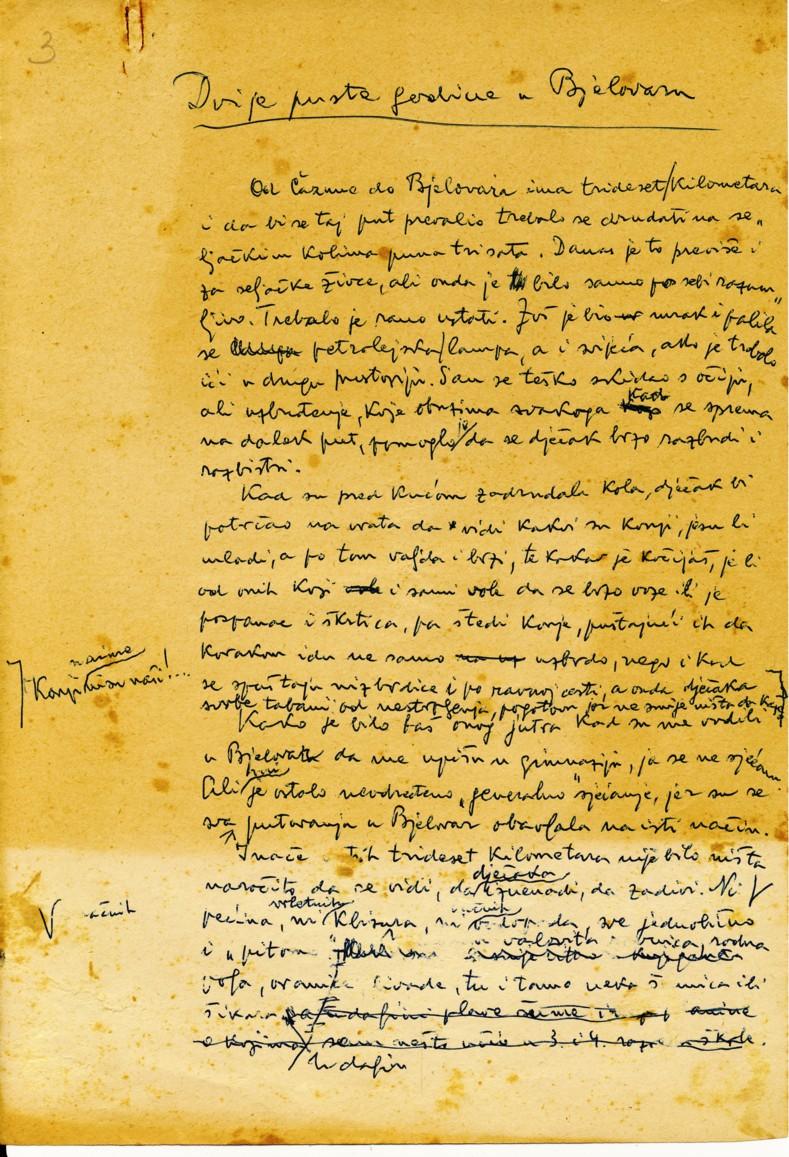 3
Dvije puste godine u Bjelovaru
Od Čazme do Bjelovara ima trideset/kilometara
i da bi se taj put prevalio trebalo se drndati na se„
ljačkim kolima puna tri sata. Danas je to previše i
za seljačke živce, ali onda je bilo samo po sebi razum„
ljivo. Trebalo je rano ustati. Još je bio mrak i palila
se petrolejska/lampa, a i svijeća, ako je trebalo
ići u drugu prostoriju. San se teško skidao s očiju,
ali uzbuđenje, koje obuzima svakoga kad se sprema
na dalek put, pomoglo je da se dječak brzo razbudi i
razbistri.
Kad su pred kućom zadrndala kola, dječak bi
potrčao na vrata da vidi kakvi su konji, jesu li
mladi, a po tom valjda i brzi, te kakav je kočijaš, je li
od onih koji i sami vole da se brzo voze ili je
pospanac i škrtica, pa štedi konje, puštajući ih da
korakom idu ne samo uzbrdo, nego i kad
se spuštaju nizbrdice i po ravnoj cesti, a onda dječaka
svrbe tabani od nestrpljenja, pogotovu jer ne smije ništa da kaže
Konji nisu naši!...
Kako je bilo baš onog jutra kad su me vodili
u Bjelovar da me upišu u gimnaziju, ja se ne sjećam.
Ali je ostalo neodređeno „generalno" sjećanje, jer su se
sva putovanja u Bjelovar obavljala na isti način.
Inače o tih trideset kilometara nije bilo ništa
naročito da se vidi, da dječaka iznenadi, da zadivi. Ni
pećina, ni klisura, ni vodopada, sve jednolično
i „pitomo
valovita ravnica, rodna
polja, oranice livade, tu i tamo neka šumica ili
šikara